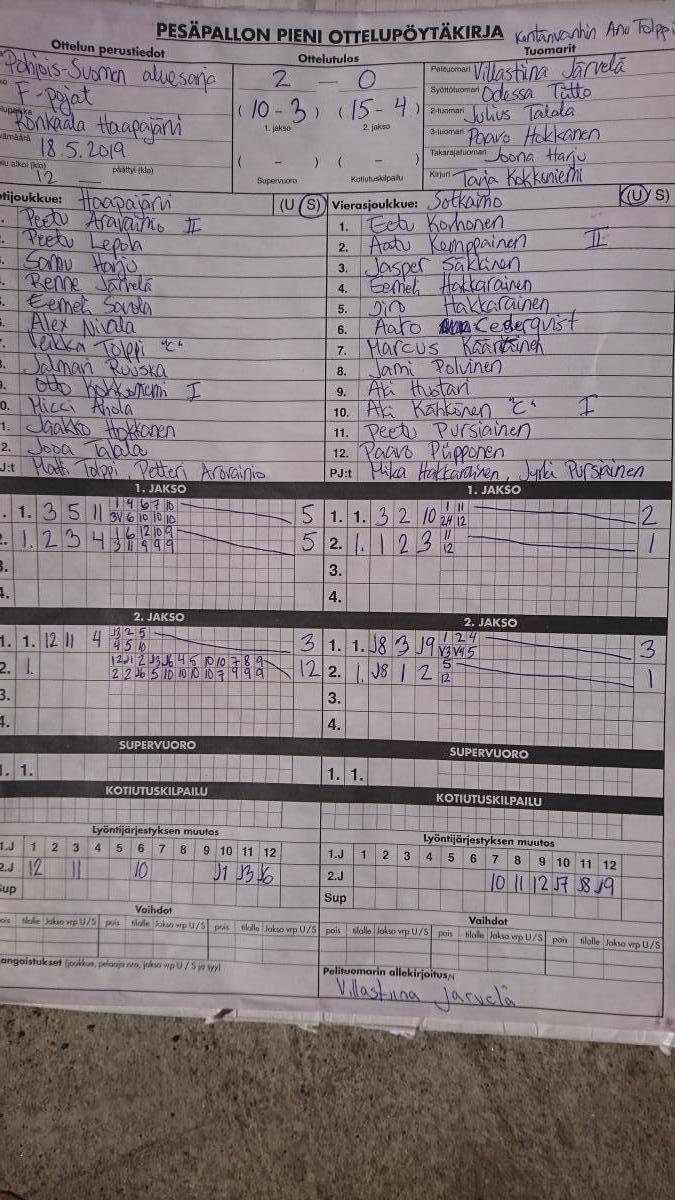 PESÄPALLON PIENI OTTELUPÖYTÄKIRJA
Kentänvanhin Anu Tolppi
Ottelun perustiedot
Pohjois-Suomen aluesarja
F-pojat
Rönkaala Haapajärvi
18.5.2019
12 – päättyi (klo)
Ottelutulos
2 – 0
(10 - 3) (15 - 4)
1. jakso 2. jakso
( - ) ( - )
Supervuoro Kotiutuskilpailu
Tuomarit
Pelituomari Villastiina Järvelä
Syöttötuomari Odessa Tütto
2-tuomari Julius Talala
3-tuomari Paavo Hokkanen
Takarajatuomari Joona Harju
Kirjuri Tarja Kokkoniemi
otijoukkue: Haapajärvi (U S)
Peetu Aravainio II
Peetu Lepola
Samu Harju
Benne Järvelä
Eemeli Savola
Alex Nivala
Veikka Tolppi "C"
Jalmari Ruuska
Otto Kokkoniemi I
0. Micci Ahola
1. Jaakko Hokkanen
2. Jooa Talala
J:t Matti Tolppi, Petteri Aravainio
Vierasjoukkue: Sotkamo (U S)
1. Eetu Korhonen
2. Aatu Kemppainen II
3. Jasper Säkkinen
4. Eemeli Hakkarainen
5. Jiro Hakkarainen
6. Aaro Cederqvist
7. Marcus Kääriäinen
8. Jami Polvinen
9. Aki Huotari
10. Aki Kähkönen "C" I
11. Peetu Pursiainen
12. Paavo Piipponen
PJ:t Mika Hakkarainen, Jyrki Pursiainen
1. JAKSO
1. 3 5 11 1 4 6 7 10 5
3V 6 10 10 10
2. 1. 2 3 4 1 6 12 10 9 5
3 11 9 9 9
3.
4.
1. JAKSO
1. 1. 3 2 10 1 11 2
2H 12
2. 1. 1 2 3 11 1
12
3.
4.
2. JAKSO
1. 1. 12 11 4 J3 2 5 3
4 5 10
2. 1. 12 J1 2 J3 J6 4 5 10 10 7 8 9 12
2 2 J6 5 10 10 10 10 7 9 9 9
3.
4.
2. JAKSO
1. 1. J8 3 J9 1 2 4 3
V3 V4 5
2. 1. J8 1 2 5 1
12
3.
4.
SUPERVUORO
1. 1.
SUPERVUORO
1. 1.
KOTIUTUSKILPAILU
KOTIUTUSKILPAILU
Lyöntijärjestyksen muutos
1.J 1 2 3 4 5 6 7 8 9 10 11 12
2.J 12 11 10 J1 J3 J6
Sup
Lyöntijärjestyksen muutos
1.J 1 2 3 4 5 6 7 8 9 10 11 12
2.J 10 11 12 J7 J8 J9
Sup
Vaihdot
pois tilalle Jakso vrp U/S pois tilalle Jakso vrp U/S pois tilalle Jakso vrp U/S
Vaihdot
pois tilalle Jakso vrp U/S pois tilalle Jakso vrp U/S pois tilalle Jakso vrp U/S
angaistukset (joukkue, pelaaja nro, jakso vrp U / S ja syy)
Pelituomarin allekirjoitus
Villastiina Järvelä